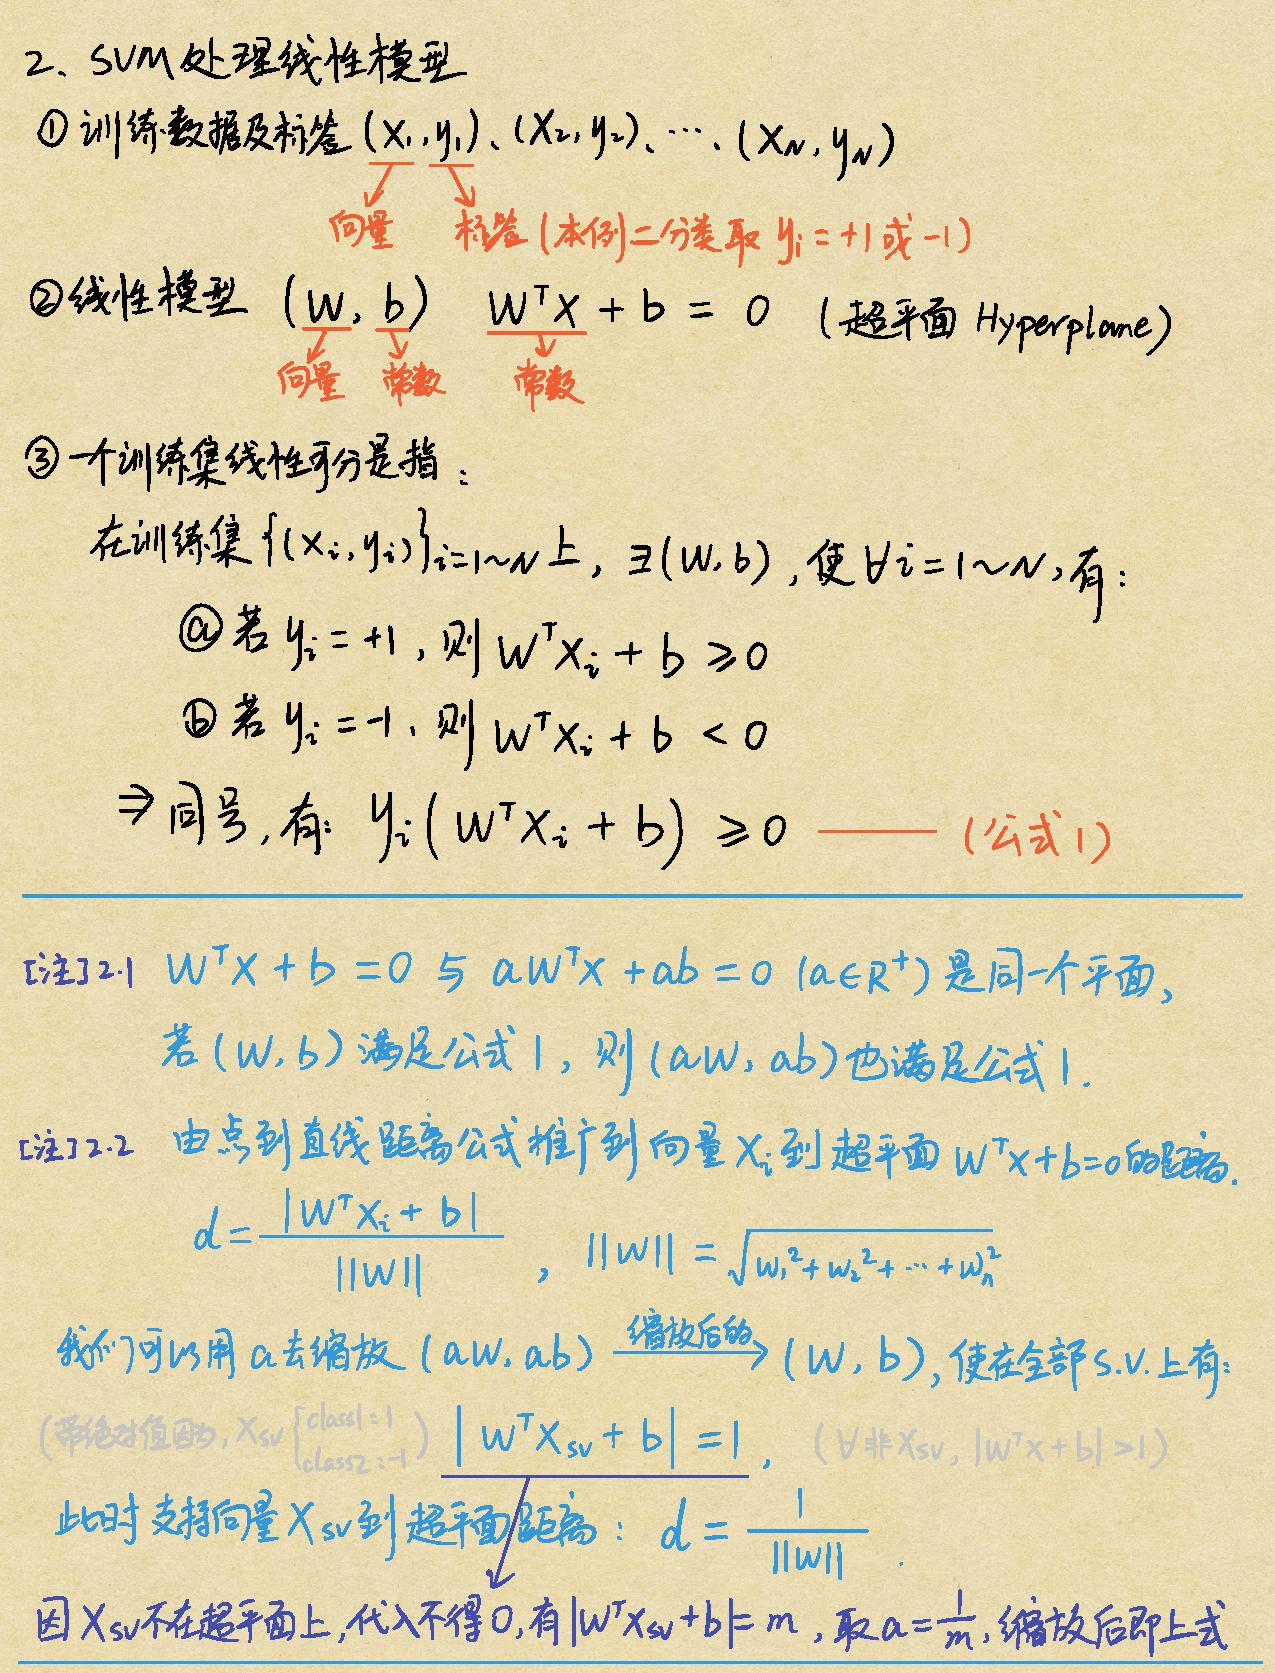 2、SVM处理线性模型
①训练数据及标签 (X₁,y₁)、(X₂,y₂)、…、(X_N,y_N)
向量 标签(本例二分类取 yᵢ=+1或-1)
②线性模型 (W,b) WᵀX+b=0 (超平面 Hyperplane)
向量 常数 常数
③一个训练集线性可分是指：
在训练集{(Xᵢ,yᵢ)}ᵢ₌₁~N上，∃(W,b)，使∀i=1~N，有：
ⓐ若 yᵢ=+1，则 WᵀXᵢ+b≥0
ⓑ若 yᵢ=-1，则 WᵀXᵢ+b<0
⇒同号，有：yᵢ(WᵀXᵢ+b)≥0 —— (公式1)
[注]2.1 WᵀX+b=0 与 aWᵀX+ab=0 (a∈R⁺)是同一个平面，
若(W,b)满足公式1，则(aW,ab)也满足公式1.
[注]2.2 由点到直线距离公式推广到向量Xᵢ到超平面WᵀX+b=0的距离.
d=|WᵀXᵢ+b|/||W||，||W||=√(W₁²+W₂²+…+Wₙ²)
我们可以用a去缩放(aW,ab) 缩放后的→ (W,b)，使在全部S.V.上有：
(带绝对值因为，X_SV{class1:1 class2:-1) |WᵀX_SV+b|=1，(∀非X_SV，|WᵀX+b|>1)
此时支持向量X_SV到超平面距离：d=1/||W||.
因X_SV不在超平面上，代入不得0，有|WᵀX_SV+b|=m，取a=1/m，缩放后即上式